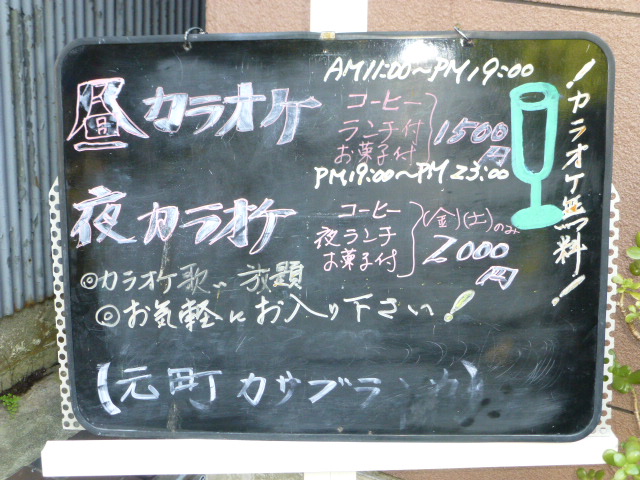 AM11:00〜PM19:00
昼カラオケ
コーヒー
ランチ付
お菓子付
1500円
PM19:00〜PM23:00
夜カラオケ
コーヒー
夜ランチ
お菓子付
(金)(土)のみ
2000円
◎カラオケ歌い放題
◎お気軽にお入り下さい!
【元町カサブランカ】
!カラオケ無料!